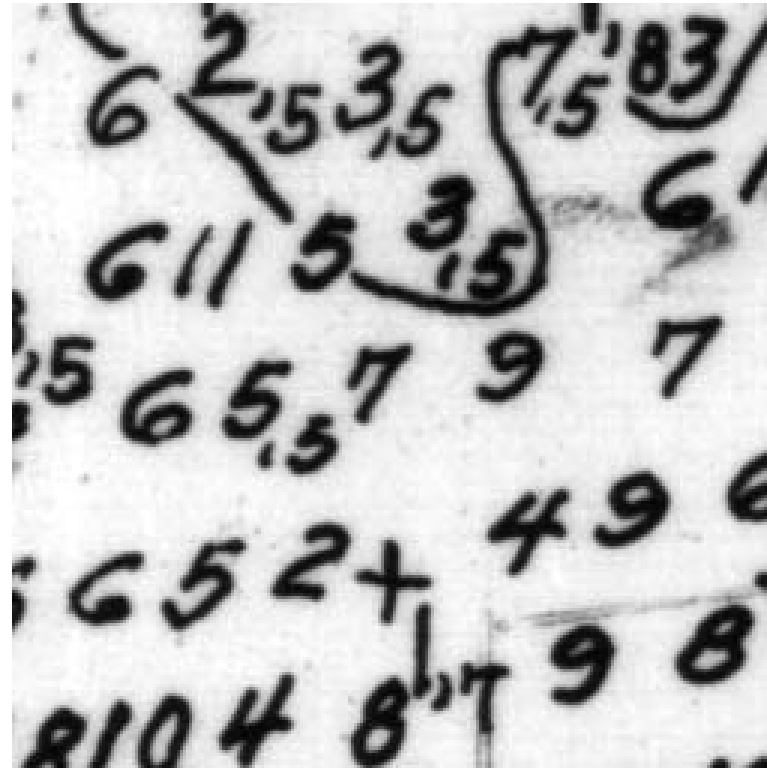 6 2,5 3,5 7,5 83
6 11 5 3,5 6
,5 6 5,5 7 9 7
4 9 6
6 5 2+
9 8
8 10 4 8 1,7